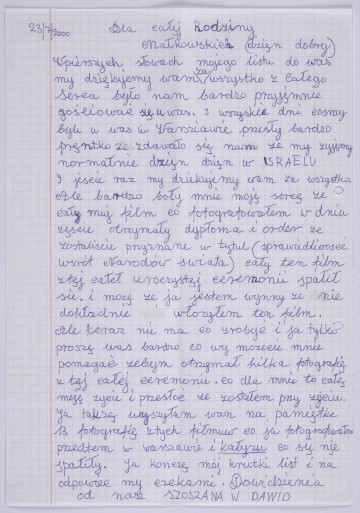 23/7/2000 Dla całej Rodziny
Małkowskich (dzięn dobry)
Wpierszych słowach mojego listu do was
my dziękujemy wam za wszystko z Całego
Serca było nam bardzo przyjęmnie
gościować się u was. I wszyskie dni cosmy
byli u was i Warszawie przesty bardzo
prętko ze zdawało się nam ze my zyjemy
normalnie dzięn dzięn w ISRAELU
I jescie raz my dziekujemy wam za wszystko
Ale bardzo boły mnie moją sercę ze
cały muj film co fotografowałem w dniu
zęście otrzymały dyploma i order ze
zostaliście przynane w tytuł (sprawiedliwosce
wsrót Narodów świata) cały ten film
z tej całeł uroczystej ceremonii spalił
się. i mozę ze ja jestem wynny ze nie
dokładnie włozyłem ten film.
Ale teraz nie ma co zrobyc i ja tylko
proszę was bardzo co wy mozecie mnie
pomagac zebym otrzymał kilka fotografię
z tęj całej ceremonii. co dla mnie to całę
moją zycie i przesłoc ze zostałem przy zyciu.
Ja takzsę wysyłam wam na pamiętke
13 fotografię z tych filmuw co ja fotografowałem
przedtem w warszawie i kałyzu co się nie
spality. Ja konczę mój krutki list i na
odpowrze my czekami. Dowidzienia
od nasz SZOSZANA W DAWID